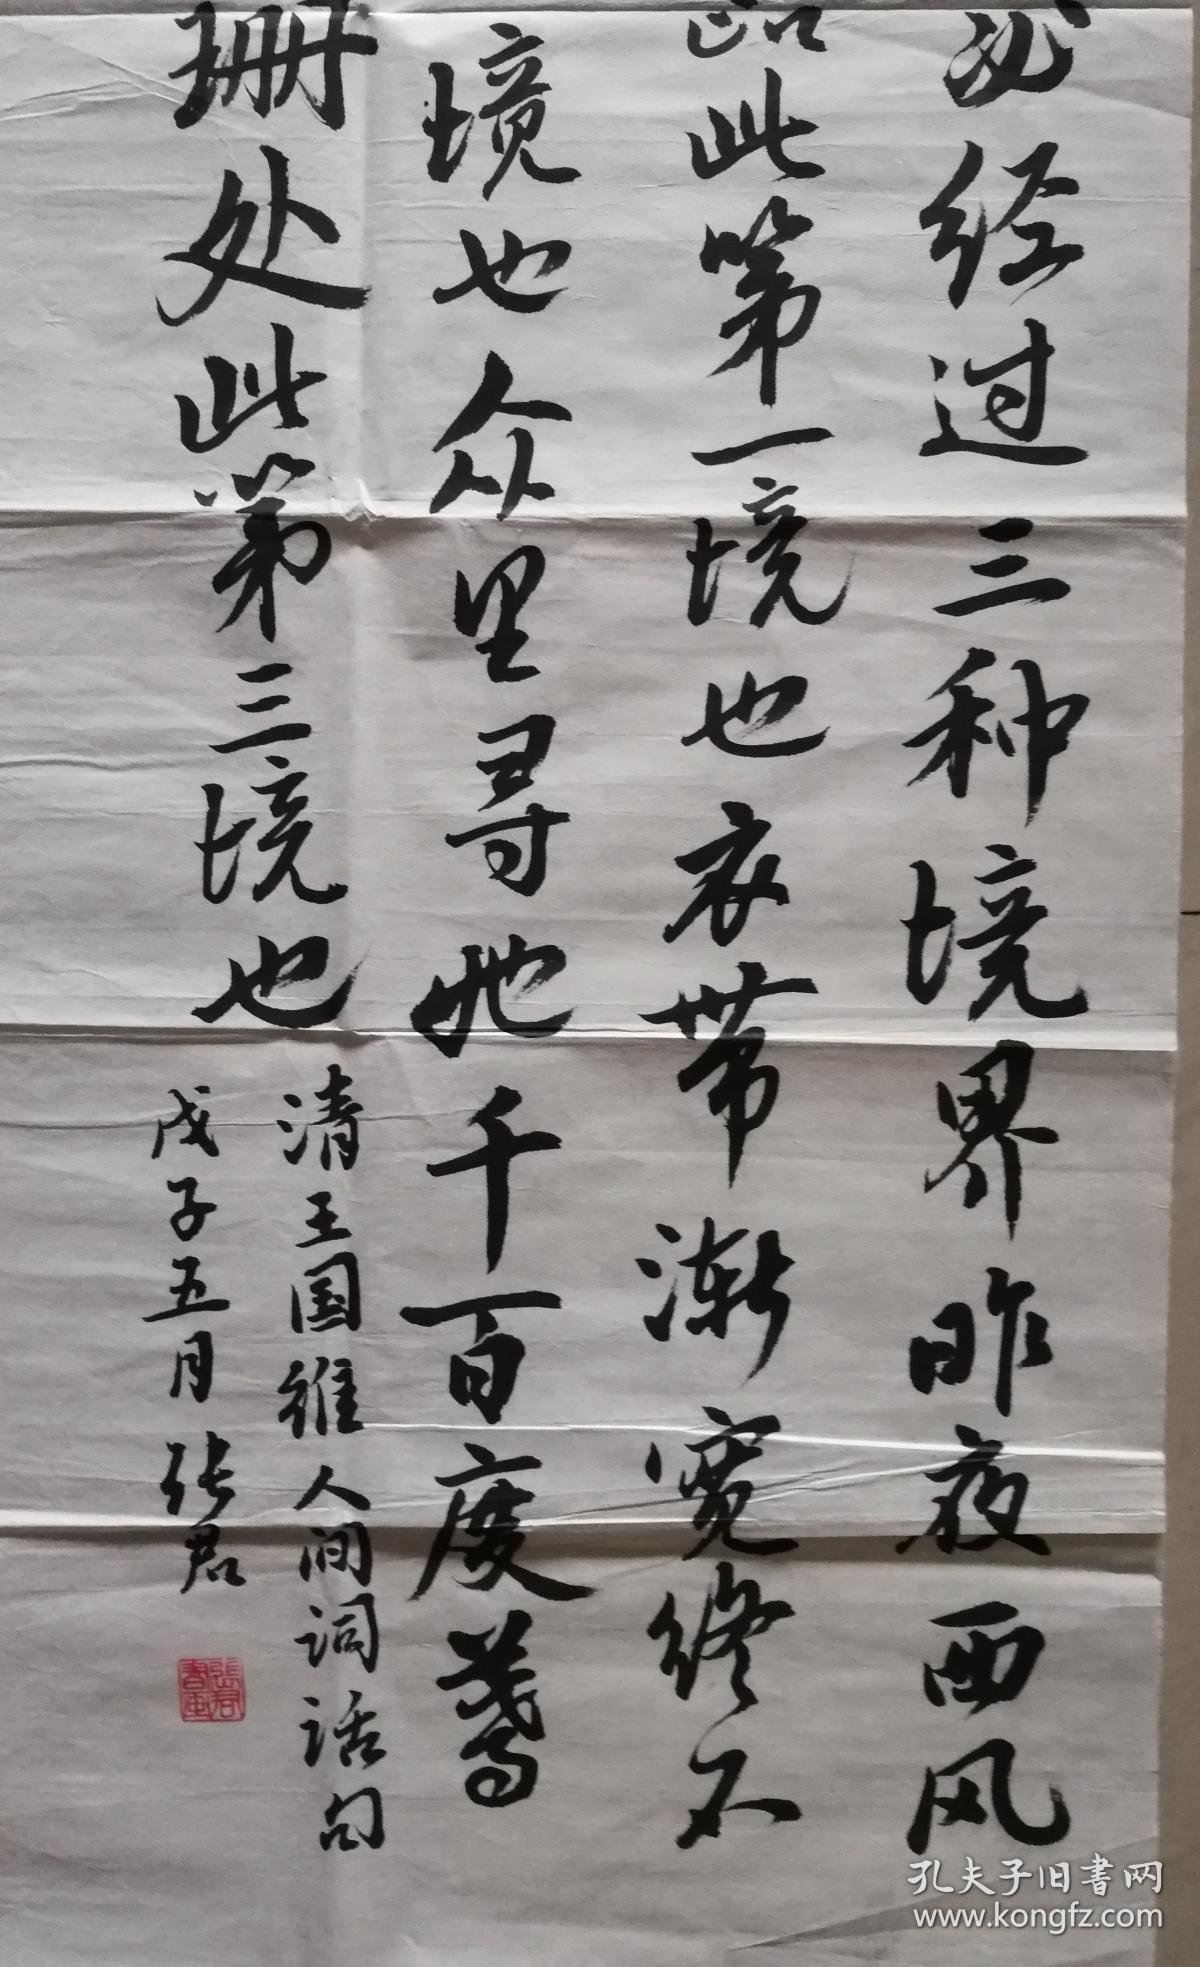 必经过三种境界昨夜西风
路此第一境也衣带渐宽终不
境也众里寻她千百度蓦
珊处此第三境也
清王国维人间词话句
戊子五月张君
張君書画
孔夫子旧书网
www.kongfz.com